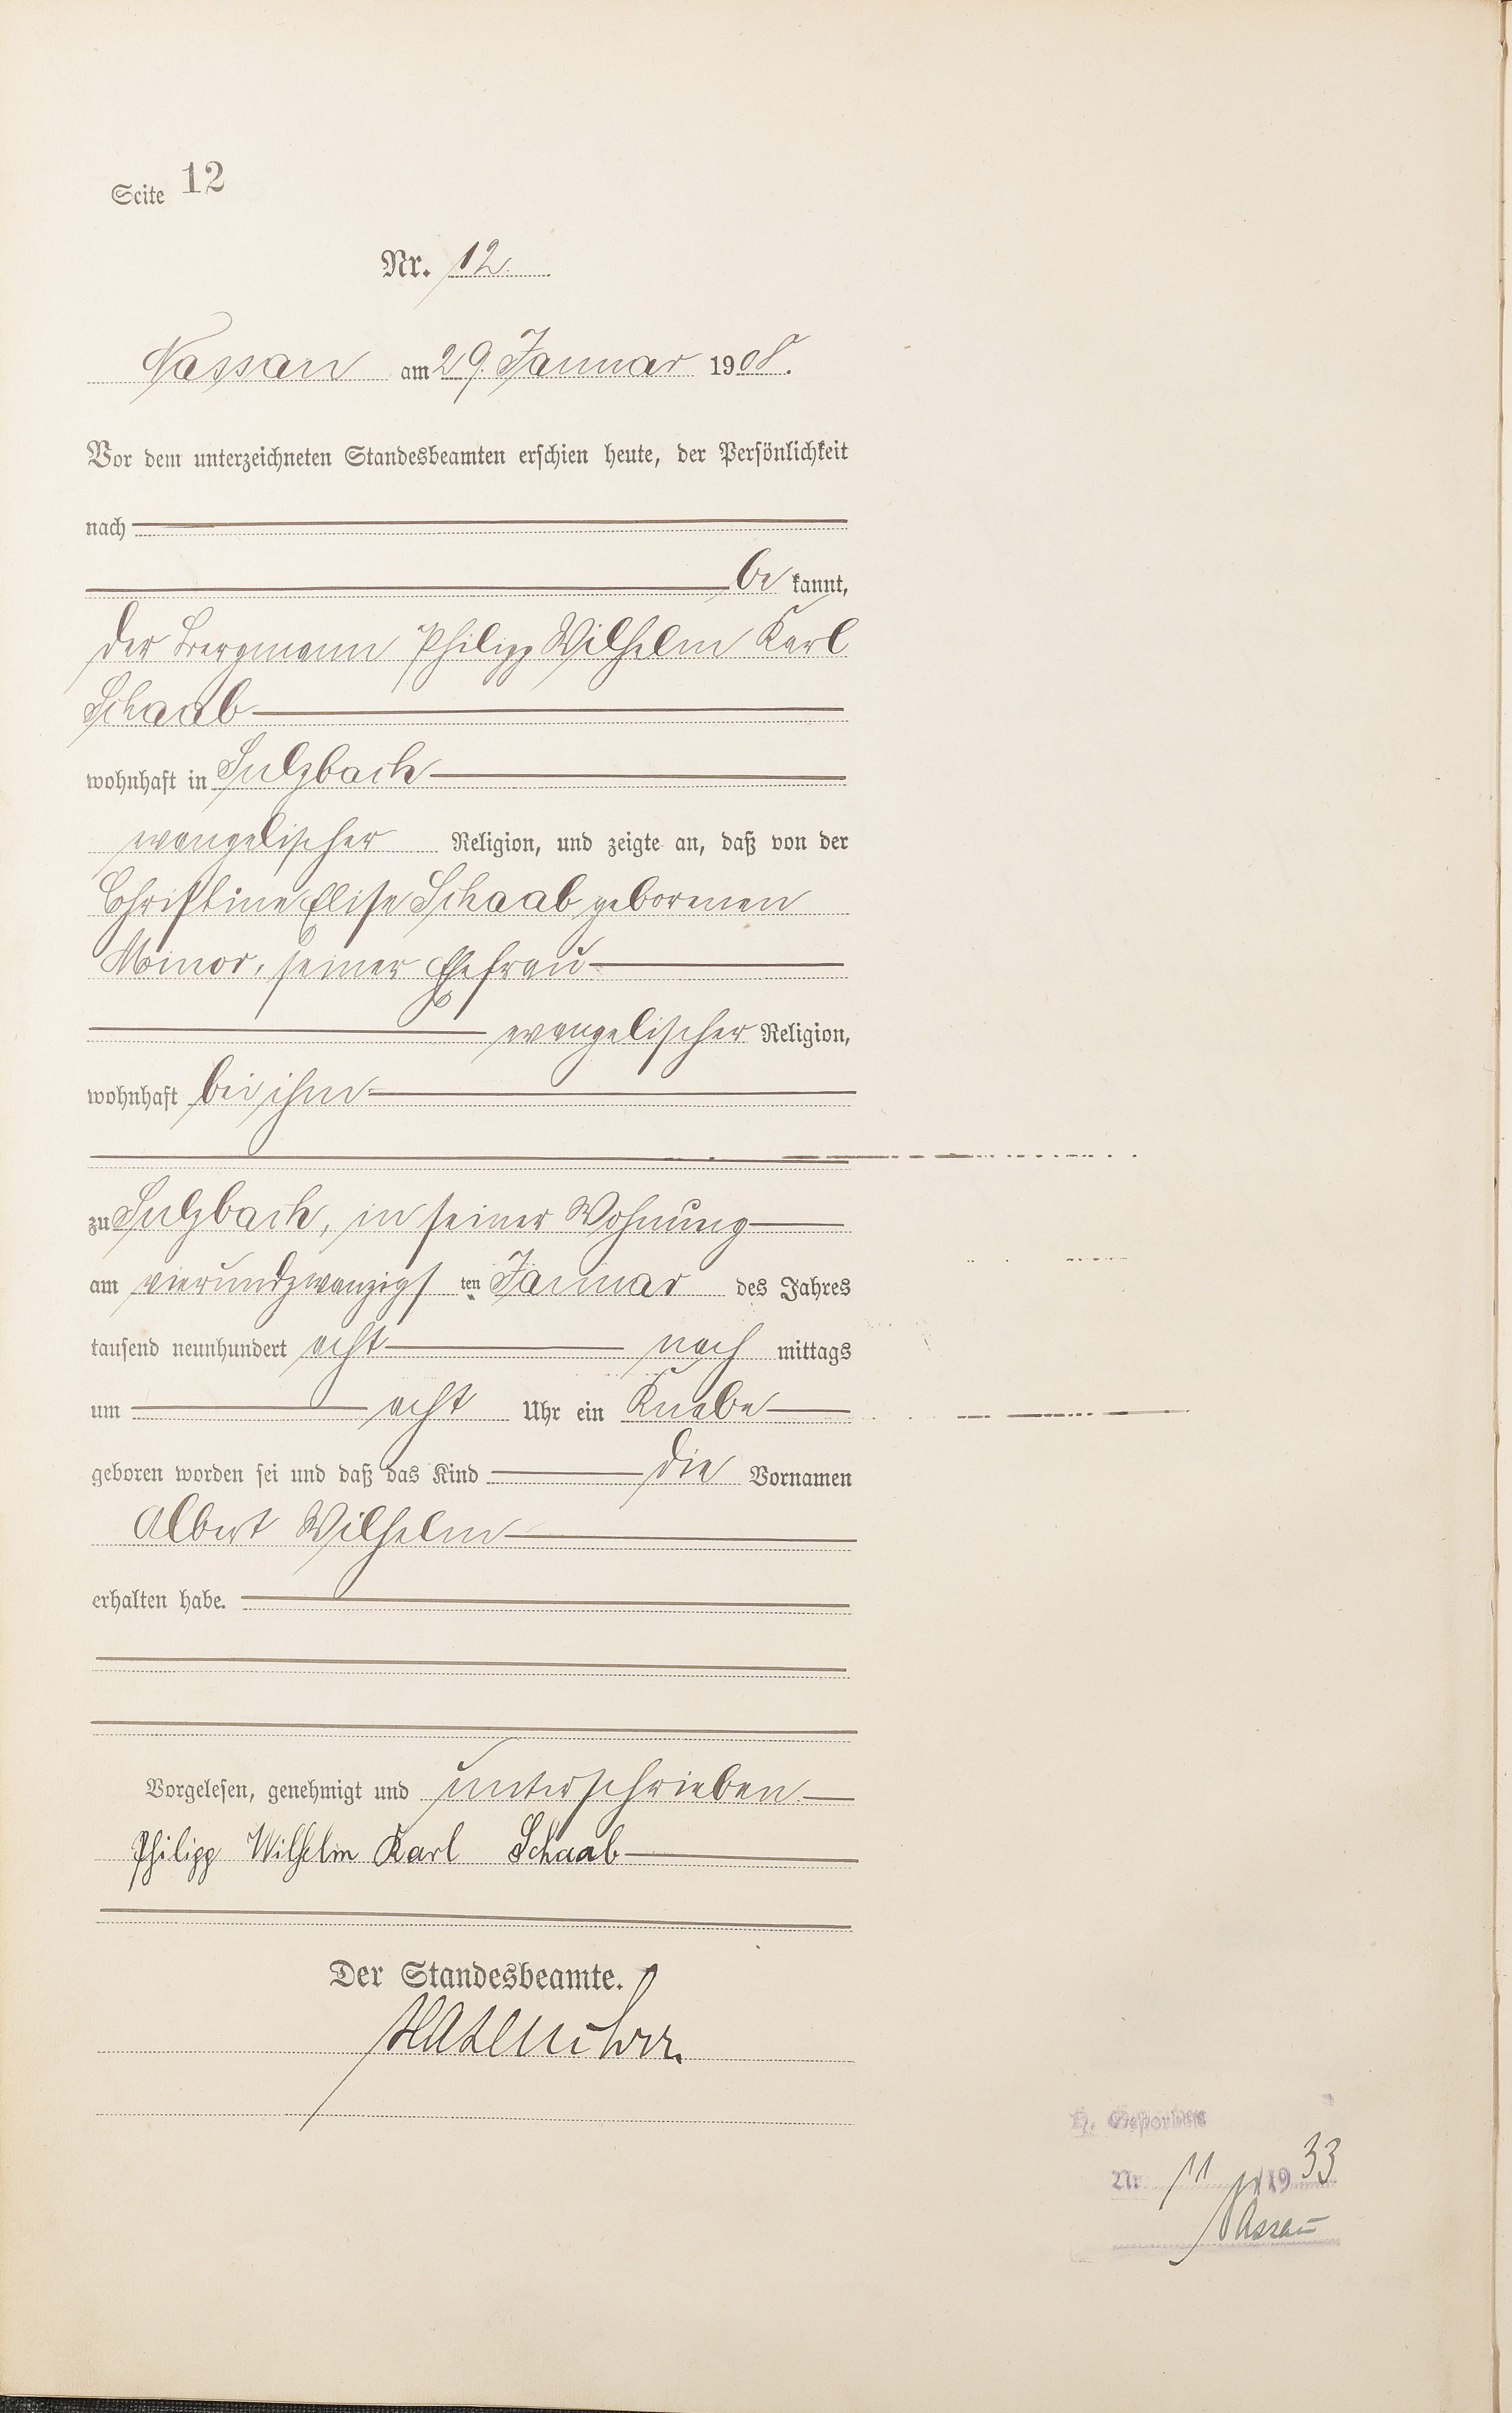 Seite 12
Nr. 12.
Nassau am 29. Januar 1908.
Vor dem unterzeichneten Standesbeamten erschien heute, der Persönlichkeit
nach
be kannt,
der Bergmann Philipp Wilhelm Karl
Schaab
wohnhaft in Sulzbach
evangelischer Religion, und zeigte an, daß von der
Christine Elise Schaab geborenen
Minor, seiner Ehefrau
evangelischer Religion,
wohnhaft bei ihm
zu Sulzbach, in seiner Wohnung
am vierundzwanzigs ten Januar des Jahres
tausend neunhundert acht nach mittags
um acht Uhr ein Knabe
geboren worden sei und daß das Kind die Vornamen
Albert Wilhelm
erhalten habe.
Vorgelesen, genehmigt und unterschrieben
Philipp Wilhelm Karl Schaab
Der Standesbeamte.
Nr. 11 1933
Nassau